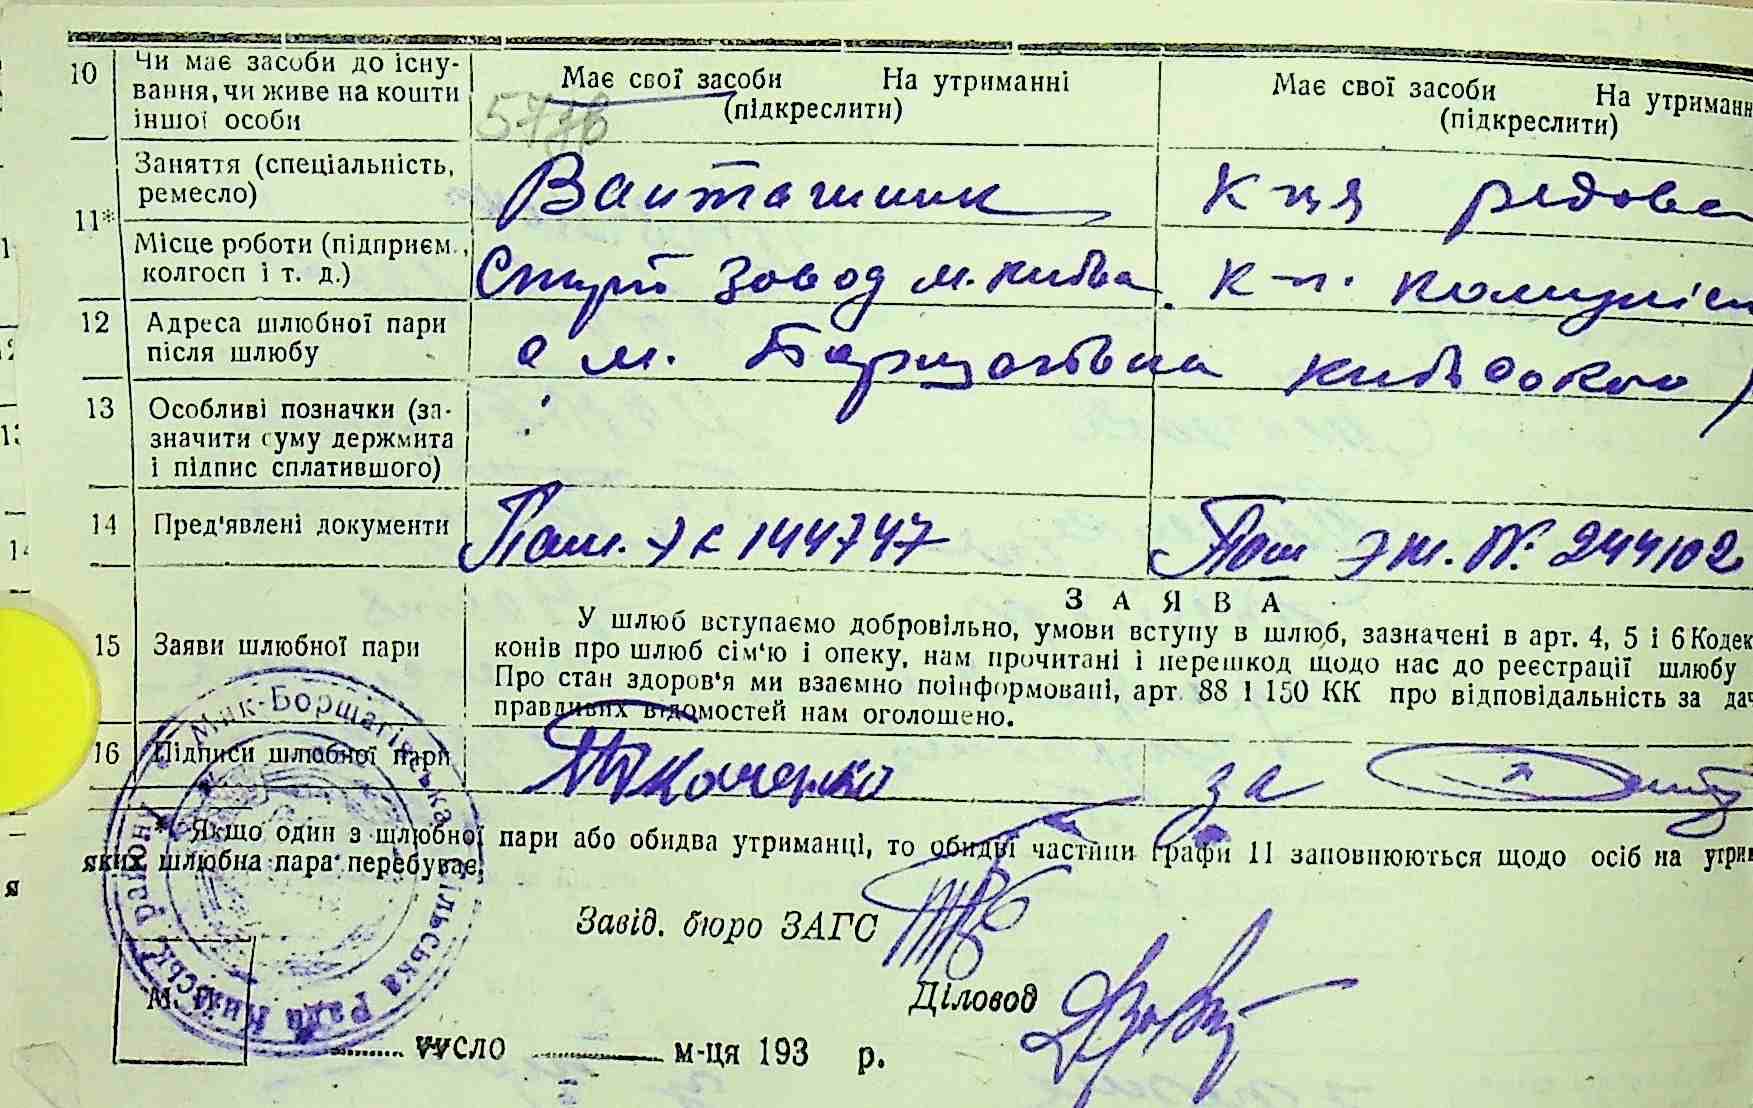 10 Чи має засоби до існу-
вання, чи живе на кошти
іншої особи
Має свої засоби На утриманні
(підкреслити)
Має свої засоби На утриманн
(підкреслити)
11* Заняття (спеціальність,
ремесло)
Вантажник
К-ця рядова
Місце роботи (підприєм.,
колгосп і т. д.)
завод м. Київа
К-п.
12 Адреса шлюбної пари
після шлюбу
с м. Борщагівка Київсокого
13 Особливі позначки (за-
значити суму держмита
і підпис сплатившого)
14 Пред'явлені документи
Паш. 144747
Паш ЭЖ. №. 244102
З А Я В А
15 Заяви шлюбної пари
У шлюб вступаємо добровільно, умови вступу в шлюб, зазначені в арт. 4, 5 і 6 Кодек
конів про шлюб сім'ю і опеку, нам прочитані і перешкод щодо нас до реєстрації шлюбу
Про стан здоров'я ми взаємно поінформовані, арт. 88 і 150 КК про відповідальність за дач
правдивих відомостей нам оголошено.
16 Підписи шлюбної пари
Ткаченко
за
* Якщо один з шлюбної пари або обидва утриманці, то обидві частини графи 11 заповнюються щодо осіб на утрим
яких шлюбна пара перебуває.
Завід. бюро ЗАГС
Діловод
М. П.
число м-ця 193 р.
Мик-Борщагівська сільська Рада Київськ району